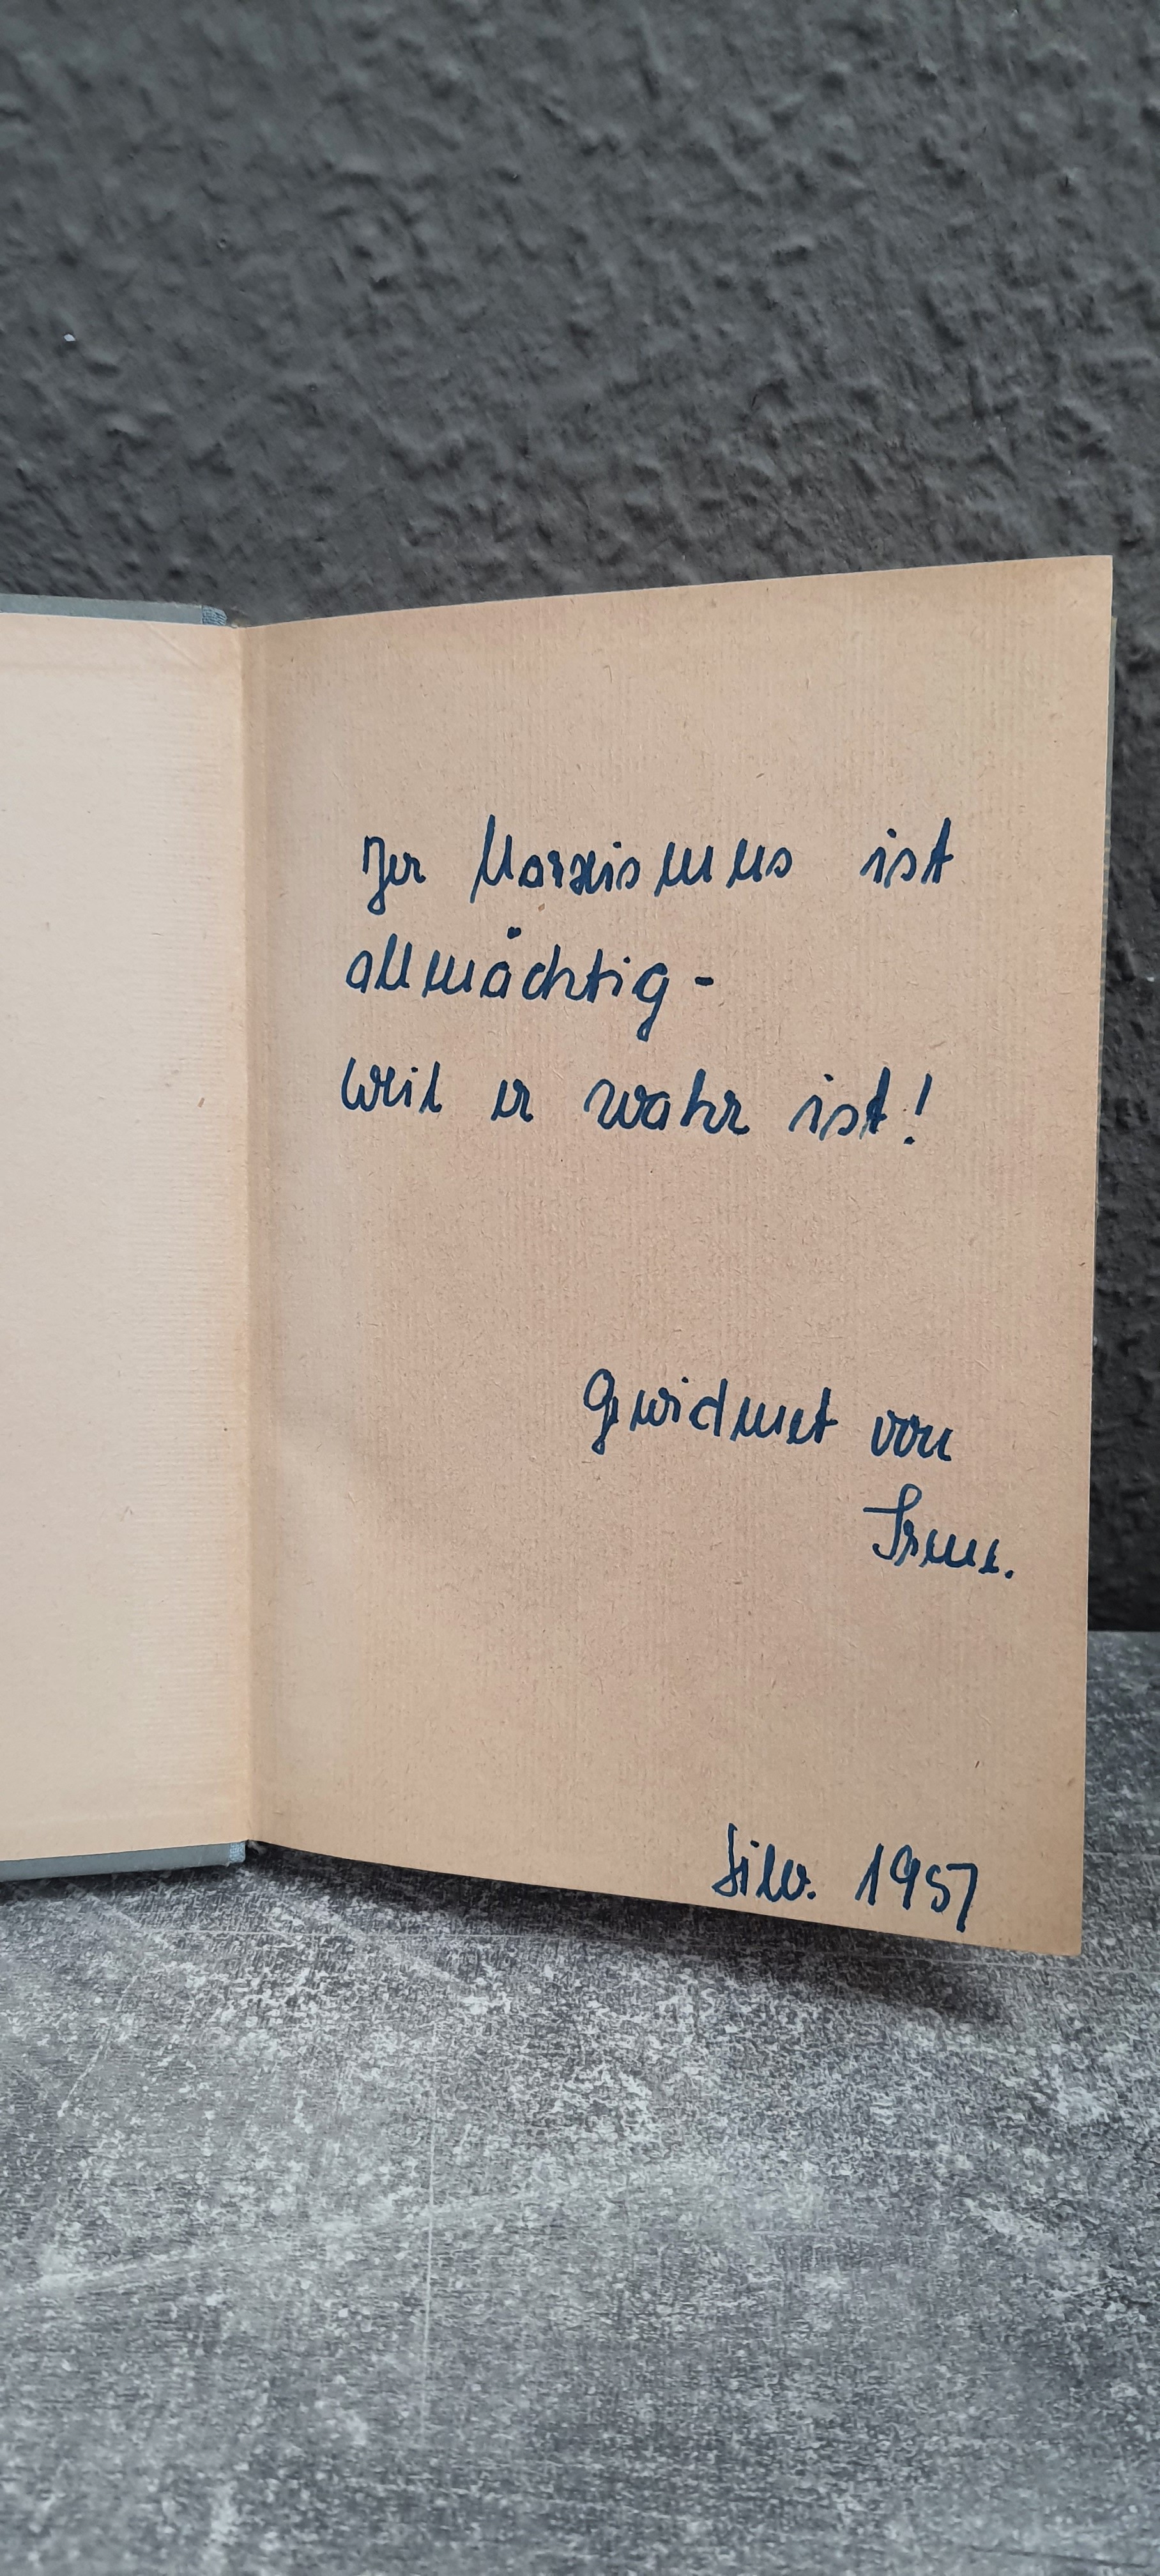 Der Marxismus ist
allmächtig -
weil er wahr ist!
Gewidmet von
Irme.
Silv. 1957